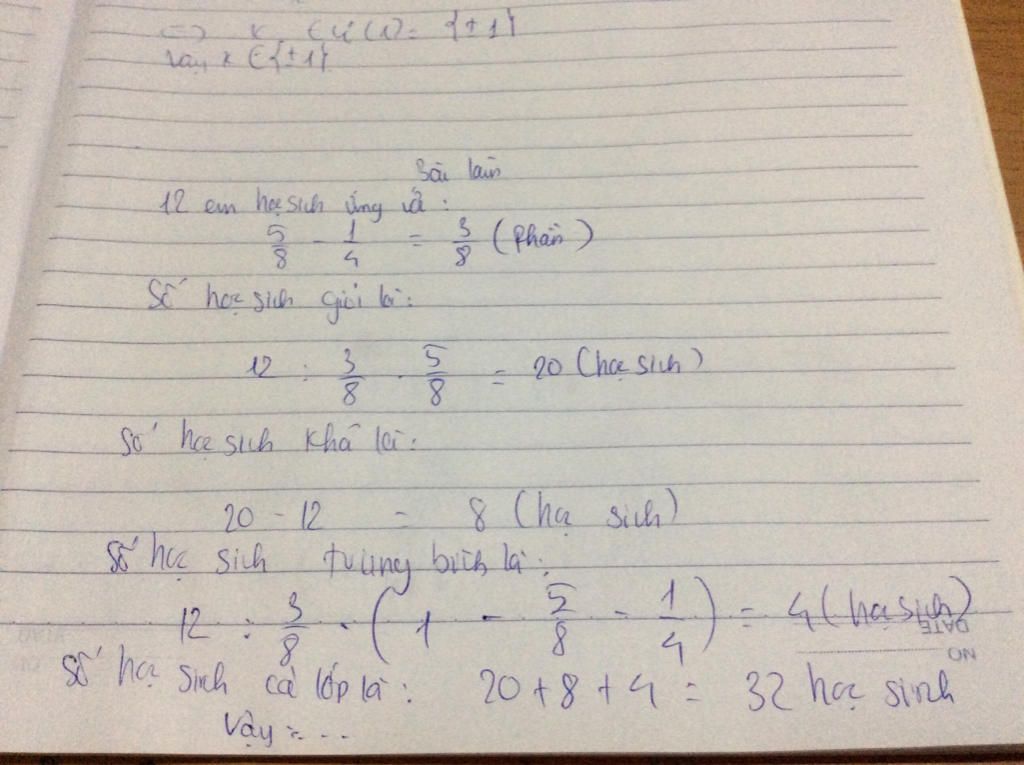 => x ∈ Ư(1) = {±1}
Vậy x ∈ {±1}
Bài làm
12 em học sinh ứng với :
5/8 - 1/4 = 3/8 (phần)
Số học sinh giỏi là :
12 : 3/8 . 5/8 = 20 (học sinh)
Số học sinh khá là :
20 - 12 = 8 (học sinh)
Số học sinh trung bình là :
12 : 3/8 . (1 - 5/8 - 1/4) = 4 (học sinh)
DATE
NO
Số học sinh cả lớp là : 20 + 8 + 4 = 32 học sinh
Vậy : ...